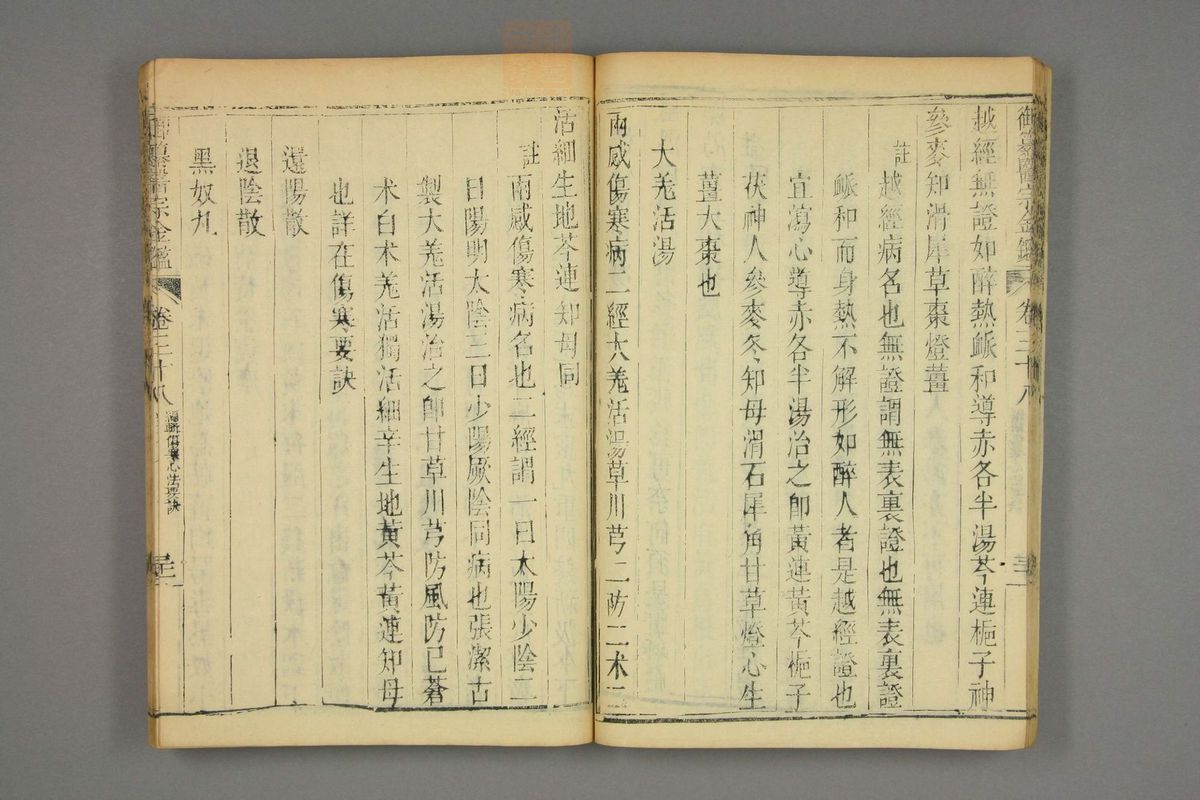 御纂醫宗金鑑 卷三十八
越經無證如醉熱脈和導赤各半湯芩連梔子神
參麥知滑犀草棗燈薑
註
越經病名也無證謂無表裏證也無表裏證
脈和而身熱不解形如醉人者是越經證也
宜瀉心導赤各半湯治之卽黃連黃芩梔子
茯神人參麥冬知母滑石犀角甘草燈心生
薑大棗也
大羌活湯
兩感傷寒病二經大羌活湯草川芎二防二术二
活細生地芩連知母同
註
兩感傷寒病名也二經謂一日太陽少陰二
日陽明太陰三日少陽厥陰同病也張潔古
製大羌活湯治之卽甘草川芎防風防已蒼
术白术羌活獨活細辛生地黃芩黃連知母
也詳在傷寒要訣
還陽散
退陰散
黑奴丸
御纂醫宗金鑑 卷三十八 編輯傷寒心法要訣